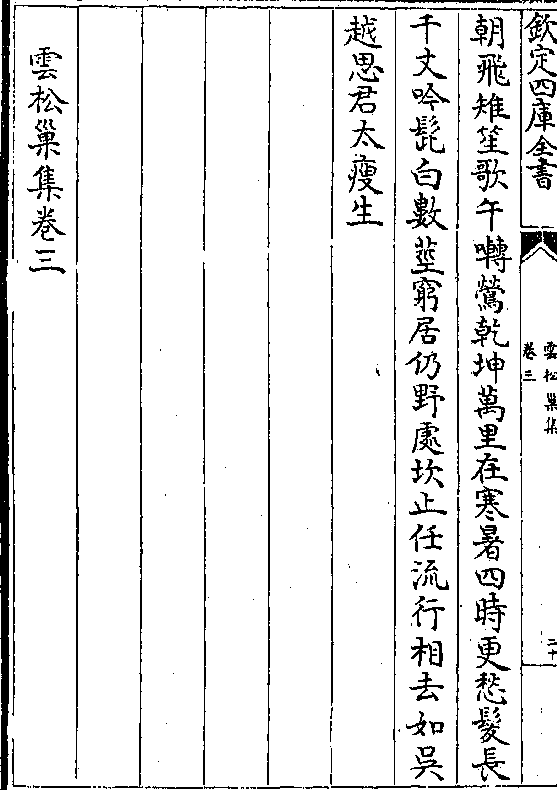 欽定四庫全書
雲松巢集
卷三
二十
朝飛雉笙歌午囀鶯乾坤萬里在寒暑四時更愁髮長
千丈吟髭白數莖窮居仍野處坎止任流行相去如吳
越思君太瘦生
雲松巢集卷三